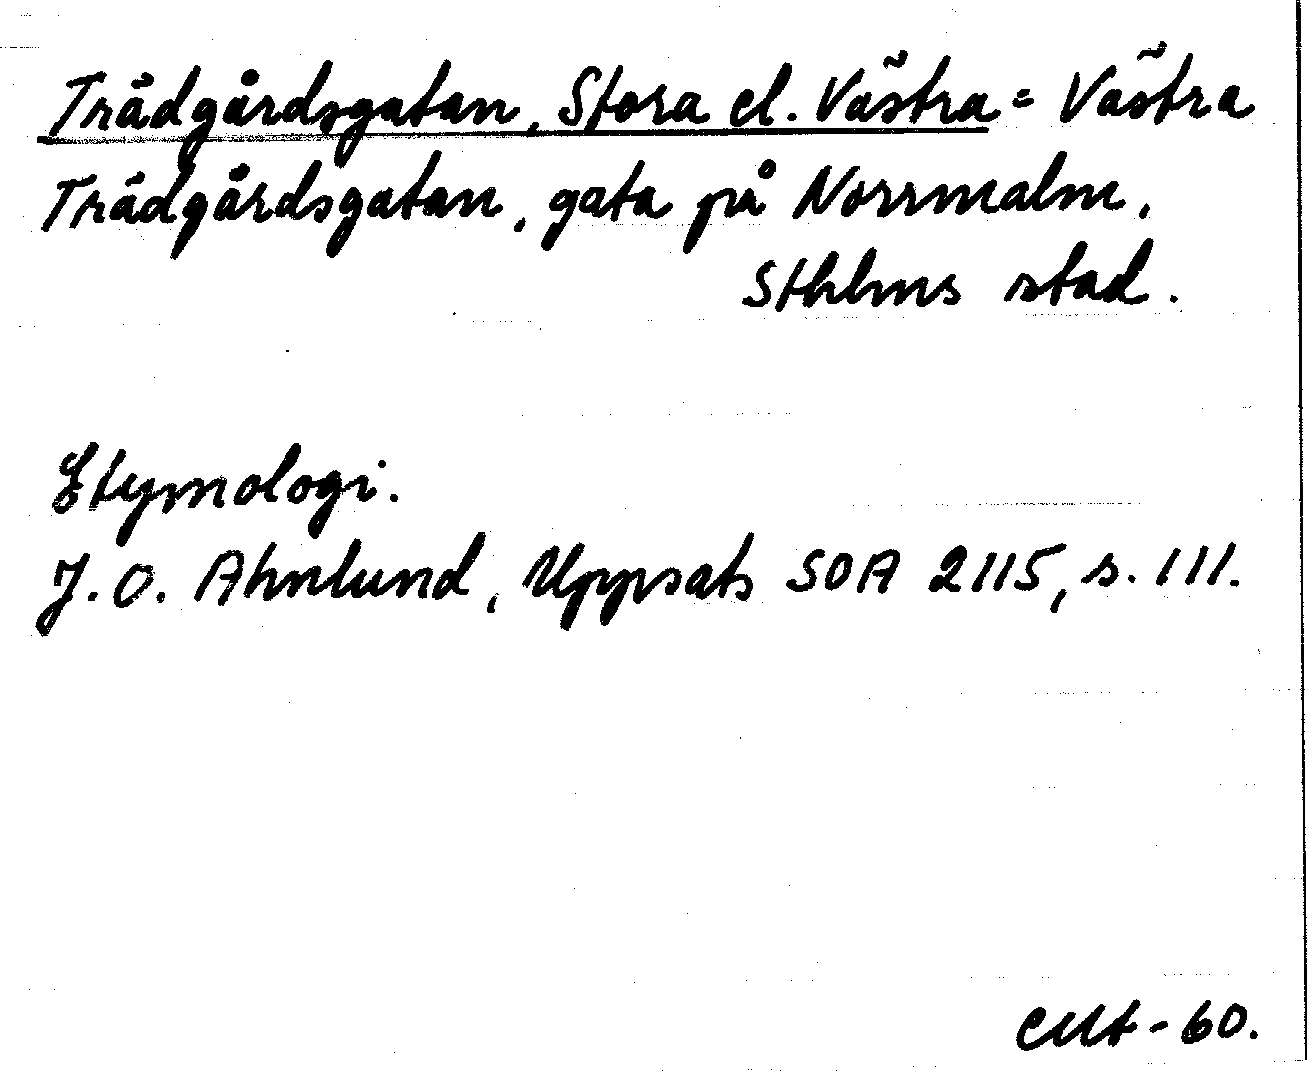 Trädgårdsgatan, Stora el. Västra = Västra
Trädgårdsgatan, gata på Norrmalm,
Sthlms stad.
Etymologi.
J. O. Ahnlund, Uppsats SOA 2115, s. 111.
-60.